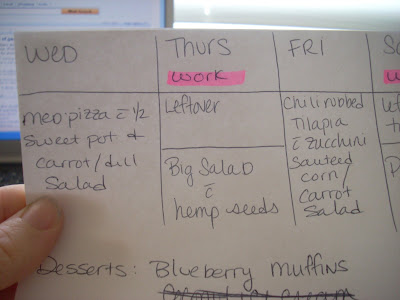 WED
THURS
FRI
work
meo pizza c̄ ½
sweet pot &
carrot/dill
salad
Leftover
Big Salad
c̄
hemp seeds
Chili rubbed
Tilapia
c̄ zucchini
sauteed
corn/
carrot
salad
Desserts: Blueberry muffins